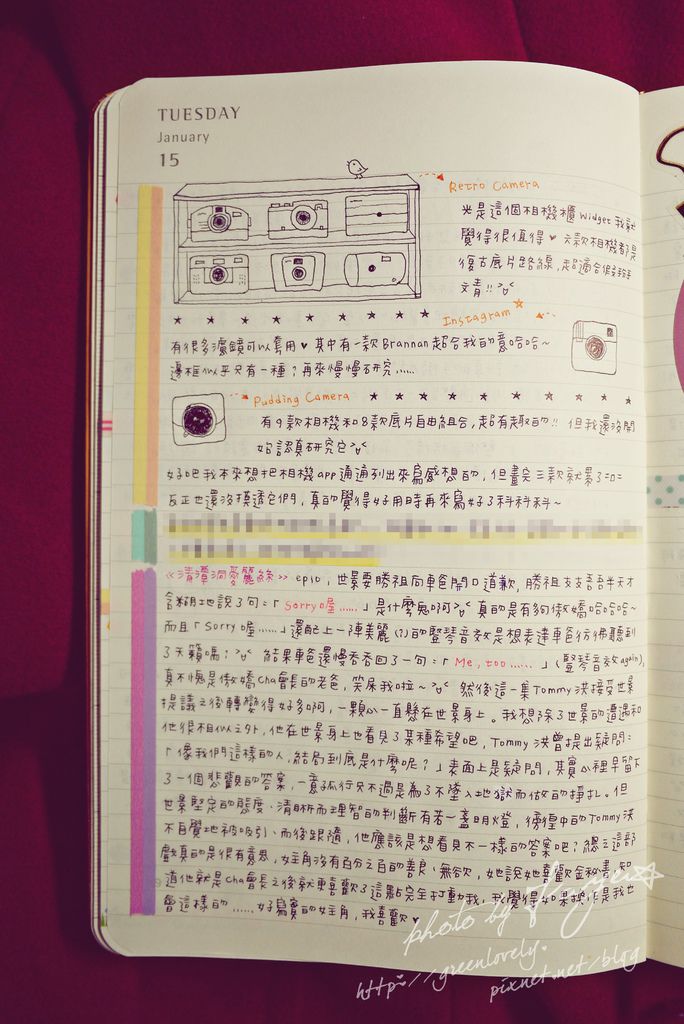 TUESDAY
January
15
Retro Camera
光是這個相機櫃 widget 我就
覺得很值得♥ 六款相機都是
復古底片路線, 超適合假掰
文青!!
Instagram
有很多濾鏡可以套用♥ 其中有一款Brannan超合我的意哈哈~
邊框似乎只有一種?再來慢慢研究……
Pudding Camera
有9款相機和8款底片自由組合, 超有趣的!! 但我還沒開
始認真研究它
好吧我本來想把相機app通通列出來寫感想的, 但畫完三款就累了=□=
反正也還沒摸透它們, 真的覺得好用時再來寫好了科科科~
<<清潭洞愛麗絲>> ep10, 世景要勝祖向車爸開口道歉, 勝祖支支吾吾半天才
含糊地說了句:「Sorry喔……」是什麼態啊 真的是有夠傲嬌哈哈哈~
而且「Sorry喔……」還配上一陣美麗(?)的豎琴音效是想表達車爸彷彿聽到
了天籟嗎? 結果車爸還慢吞吞回了一句:「Me, too……」(豎琴音效again),
真不愧是傲嬌Cha會長的老爸, 笑屎我啦~ 然後這一集Tommy洪接受世景
提議之後轉變得好多啊, 一顆心一直懸在世景身上。我想除了世景的遭遇和
他很相似之外, 他在世景身上也看見了某種希望吧, Tommy洪曾提出疑問:
「像我們這樣的人, 結局到底是什麼呢?」表面上是疑問, 其實心裡早留下
了一個悲觀的答案, 一意孤行只不過是為了不墜入地獄而做的掙扎。但
世景堅定的態度、清晰而理智的判斷有若一盞明燈, 徬徨中的Tommy洪
不自覺地被吸引、而後跟隨, 他應該是想看見不一樣的答案吧?總之這部
戲真的是很有意思, 女主角沒有百分之百的善良、無欲, 她說她喜歡金秘書, 知
道他就是Cha會長之後就更喜歡了這點完全打動我, 我覺得如果換作是我也
會這樣的……好寫實的女主角, 我喜歡♥
photo by
http://greenlovely.
pixnet.net/blog